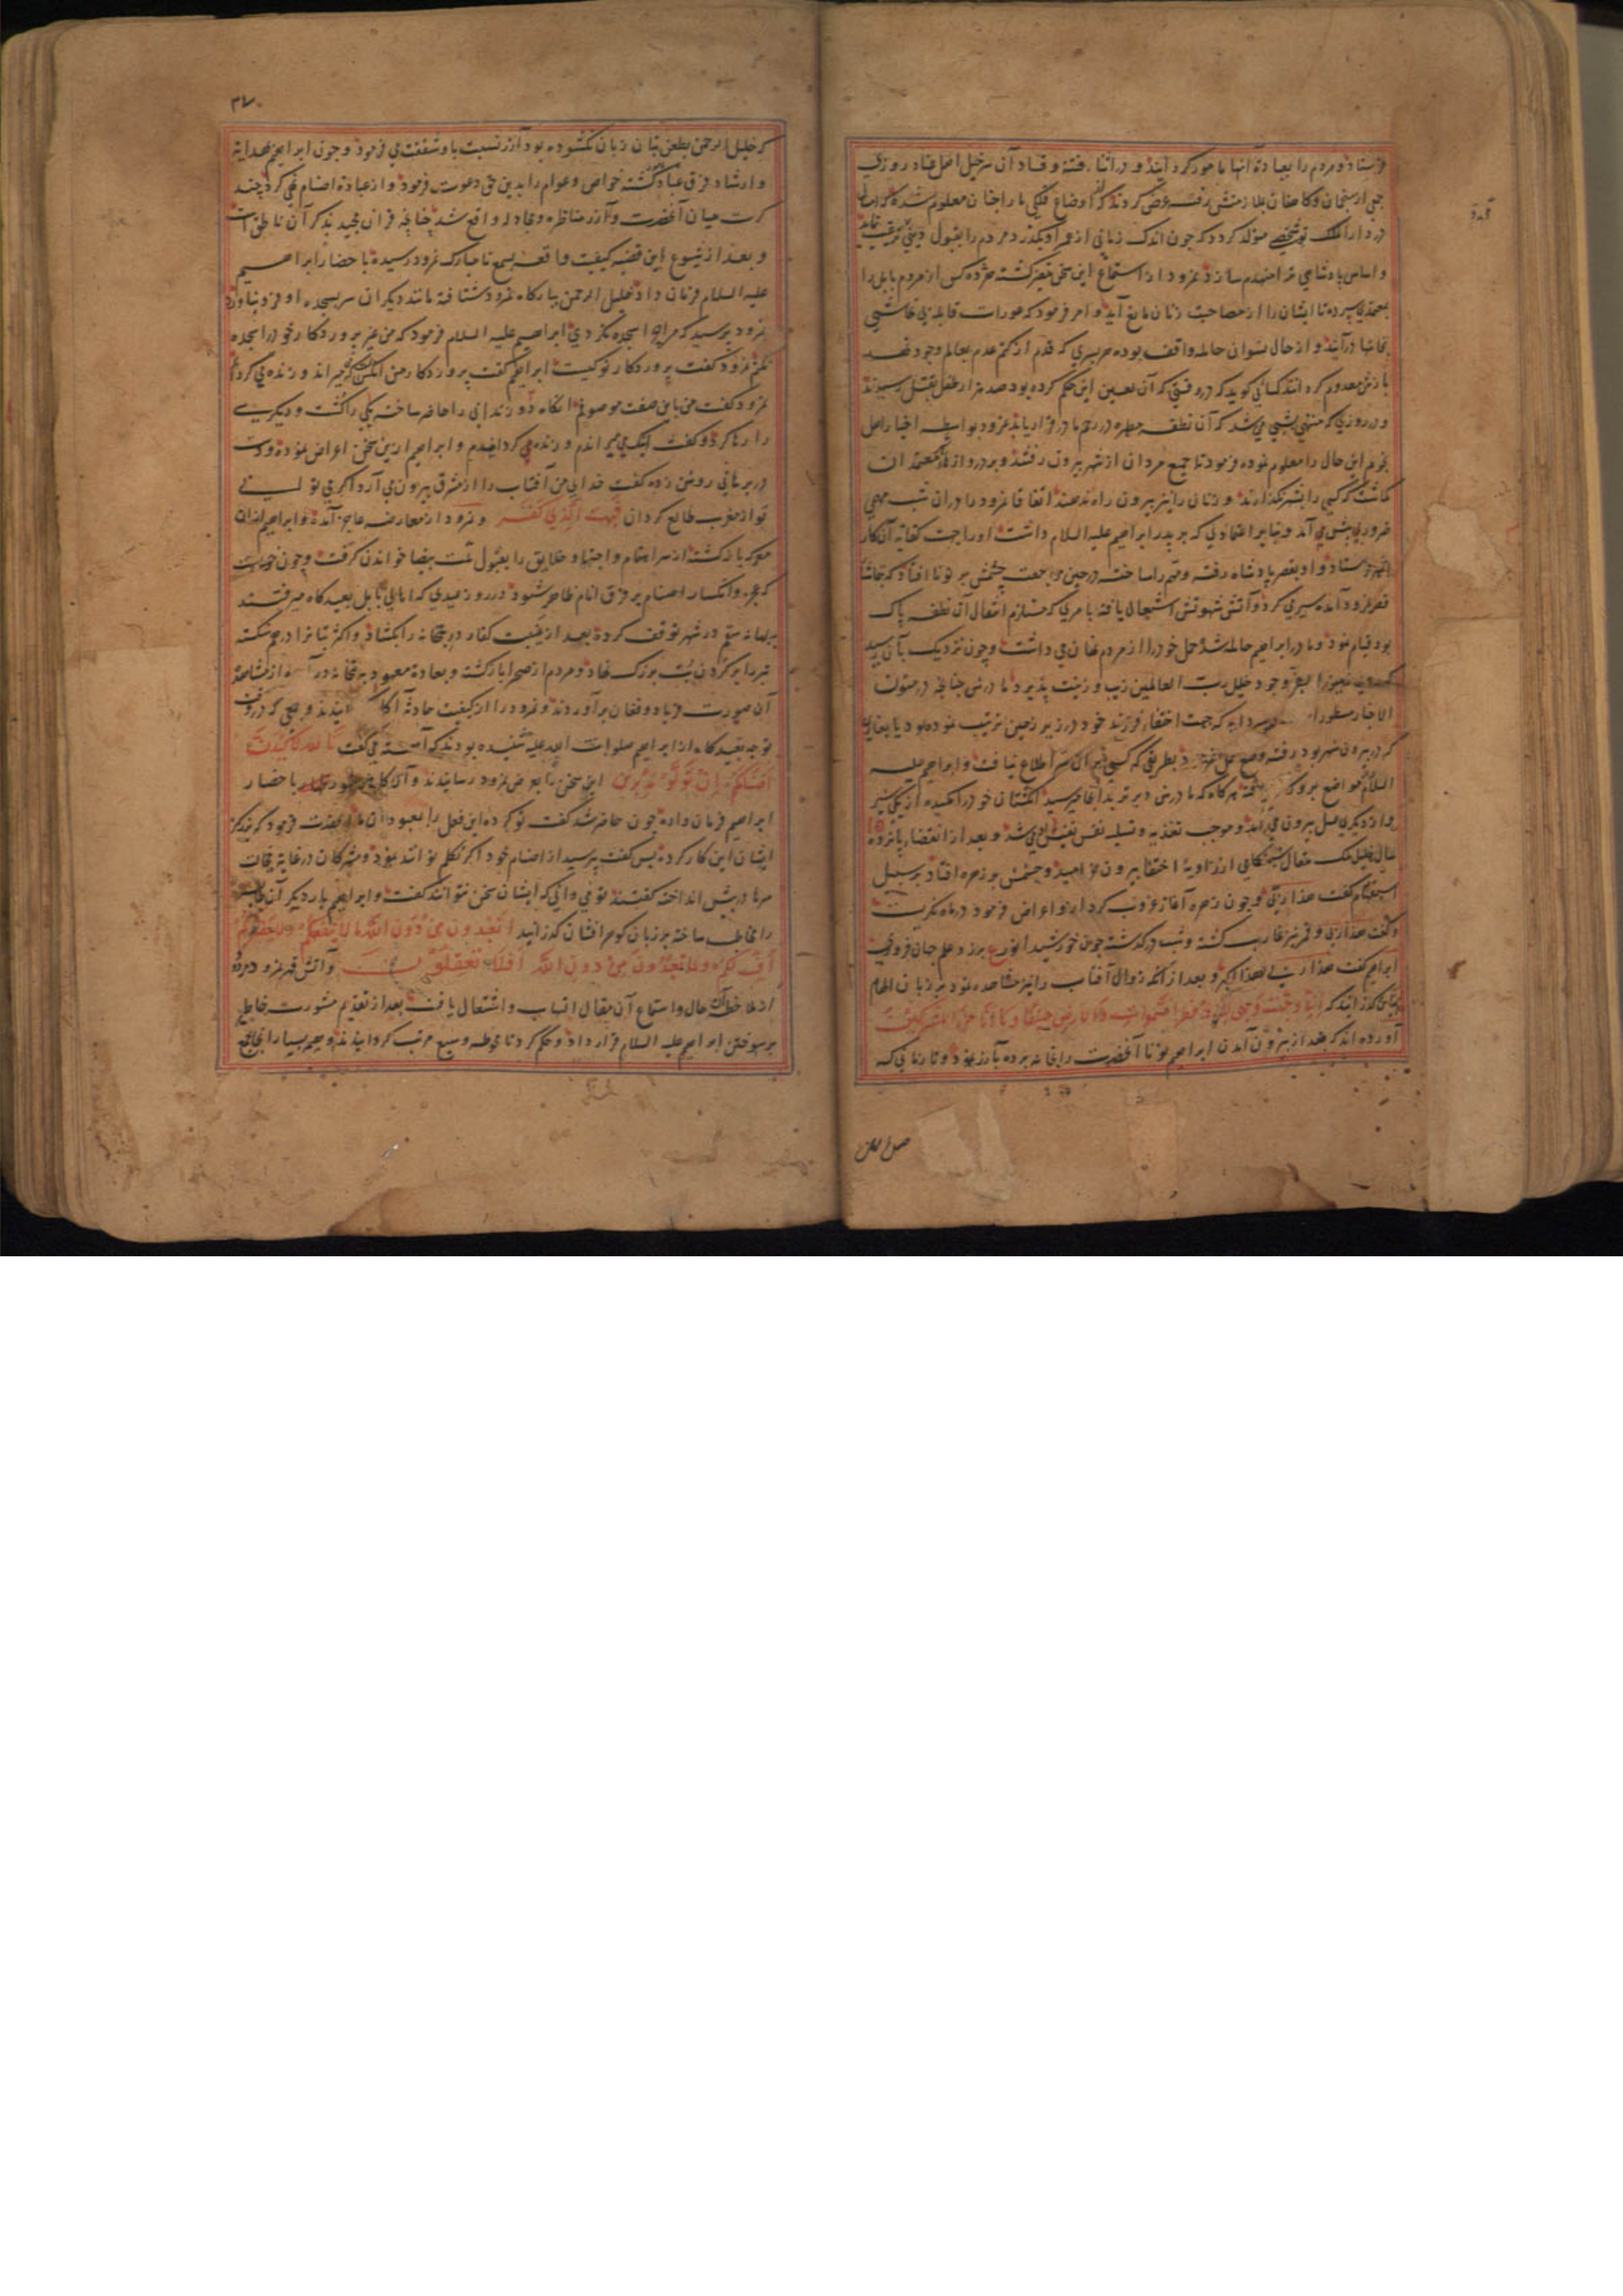 فرستاد و مردم را بعبادة آنها مامور گردانید و در اثناء فتنه و فساد آن سرخیل اهل عناد روزی
جمعی از منجمان و کاهنان بملازمتش رفته عرض کردند که از اوضاع فلکی ما را چنان معلوم شده که امسال
در دار الملک تو شخصی متولد گردد که چون اندک زمانی از عمر او بگذرد مردم را بقبول دینی ترغیب نماید
و اساس پادشاهی ترا منهدم سازد نمرود از استماع این سخن متغیر گشته هر ده کس از مردم بابل را
بمعتمدی سپرد تا ایشان را از مصاحبت زنان مانع آید و امر فرمود که عورات قابله بی تحاشی
بخانها درآیند و از حال نسوان حامله واقف بوده هر پسری که قدم از کتم عدم بعالم وجود نهد
بازش معدوم گردانند کسائی گوید که در وقتی که آن لعین این حکم کرده بود صد هزار طفل بقتل رسیدند
و در روزی که منتهی بشبی می شد که آن نطفه مطهره در رحم مادر قرار یابد نمرود بواسطه اخبار اهل
نجوم این حال را معلوم نموده فرمود تا جمیع مردان از شهر بیرون رفتند و بر دروازها معتمدان
گماشت که کسی را بشهر نگذارند و زنان را نیز بیرون راه ندهند اتفاقا نمرود را در آن شب مهمی
ضروری پیش می آمد و بنابر اعتمادی که بر پدر ابراهیم علیه السلام داشت او را جهت کفایه آن کار
بشهر فرستاد و او بقصر پادشاه رفته و مهم را ساخته در حین مراجعت چشمش بر نونا افتاد که بتماشا
قصر نمرود آمده سیری میکرد و آتش شهوتش اشتعال یافته بامری که مستلزم انتقال آن نطفه پاک
بود قیام نمود و مادر ابراهیم حامله شد و حمل خود را از مردم نهان می داشت و چون نزدیک بآن رسید
که بفر وجود خلیل رب العالمین زیب و زینت پذیرد مادرش چنانچه در متون
الاخبار مسطور است بسردابه که جهت اختفاء فرزند خود در زیر زمین ترتیب نموده بود یا بغاری
که در بیرون شهر بود رفته وضع حمل نمود بطریقی که کسی بر آن سر اطلاع نیافت و ابراهیم علیه
السلام در آن مواضع هر گاه که مادرش دیرتر بدانجا میرسید انگشتان خود را مکیدی از یکی شیر
و از دیگری عسل بیرون می آمد و موجب تغذیه و تسلیه نفس نفیس او می شد و بعد از انقضاء پانزده
سال خلیل ملک متعال شبانگاهی از زاویه اختفا بیرون خرامید و چشمش بر زهره افتاد بر سبیل
استفهام گفت هذا ربی و چون زهره آغاز غروب کرد از او اعراض فرمود در ماه نگریست
و گفت هذا ربی و قمر نیز غارب گشته و شب درگذشته چون خورشید انور علم بر جهان فروخت
ابراهیم گفت هذا ربی هذا اکبر و بعد از آنکه زوال آفتاب را نیز مشاهده نمود بر زبان الهام
بیان گذرانید که انی وجهت وجهی للذی فطر السموات والارض حنیفا وما انا من المشرکین
آورده اند که بعد از بیرون آمدن ابراهیم نونا آنحضرت را بخانه برده بآزر نمود و تا زمانی که
۳۷
که خلیل الرحمن بطعن بتان زبان نگشوده بود آزر نسبت باو شفقت می فرمود و چون ابراهیم بهدایه
و ارشاد فرق عباد مامور گشته خواص و عوام را بدین حق دعوت فرمود و از عبادة اصنام نهی کرد چند
کرت میان آنحضرت و آزر مناظره و مجادله واقع شد چنانچه قران مجید بذکر آن ناطق است
و بعد از شیوع این قضیه کیفیت واقعه بسمع نامبارک نمرود رسیده باحضار ابراهیم
علیه السلام فرمان داد خلیل الرحمن ببارگاه نمرود شتافته مانند دیگران سر بسجده او فرو نیاورد
نمرود پرسید که مرا چرا سجده نکردی ابراهیم علیه السلام فرمود که من غیر پروردکار خود را سجده
نکنم نمرود گفت پروردکار تو کیست ابراهیم گفت پروردکار من آنکس که میراند و زنده می گرداند
نمرود گفت من باین صفت موصوفم آنگاه دو زندانی را حاضر ساخته یکی را کشت و دیگری
را رها کرد و گفت اینک می میرانم و زنده می گردانم و ابراهیم ازین سخن اعراض نموده دست
در برهانی روشن زده گفت خدای من آفتاب را از مشرق بیرون می آرد اگر می توانی
تو از مغرب طالع گردان فبهت الذی کفر و نمرود از معارضه عاجز آمده و ابراهیم از آن
معرکه بازگشته از سر اهتمام و اجتهاد خلایق را بقبول ملت بیضا خواندن گرفت و چون خواست
که عجز و انکسار اصنام بر فرق انام ظاهر شود در روز عیدی که اهالی بابل بعیدگاه میرفتند
ببهانه سقم در شهر توقف کرده بعد از غیبت کفار در بتخانه را بگشاد و اکثر بتانرا درهم شکسته
تبر را بر گردن بت بزرگ نهاد و مردم از صحرا بازگشته و بعادة معهود به بتخانه درآمده از مشاهده
آن صورت فریاد و فغان برآوردند و نمرود را از کیفیت حادثه آگاه گردانیدند و جمعی که در وقت
توجه بعیدگاه از ابراهیم صلوات الله علیه شنیده بودند که آهسته می گفت تالله لاکیدن
اصنامکم بعد ان تولوا مدبرین این سخن را بعرض نمرود رسانیدند و آن باحضار
ابراهیم فرمان داده چون حاضر شد گفت تو کرده این فعل را بمعبودان ما آنحضرت فرمود که بزرگتر
ایشان این کار کرده پس گفت بپرسید از اصنام خود اگر تکلم توانند نمود و مشرکان در غایه خجالت
سرها در پیش انداخته گفتند تو می دانی که ایشان سخن نتوانند گفت و ابراهیم بار دیگر آن طایفه
را مخاطب ساخته بر زبان گوهر افشان گذرانید اتعبدون من دون الله ما لا ینفعکم ولا یضرکم
اف لکم ولما تعبدون من دون الله افلا تعقلون و آتش قهر نمرود مردود
از ملاحظه آن حال و استماع آن مقال التهاب و اشتعال یافت بعد از تقدیم مشورت خاطر
بر سوختن ابراهیم علیه السلام قرار داد و حکم کرد تا محوطه وسیع مرتب گردانیدند و هیمه بسیار در آنجا جمع